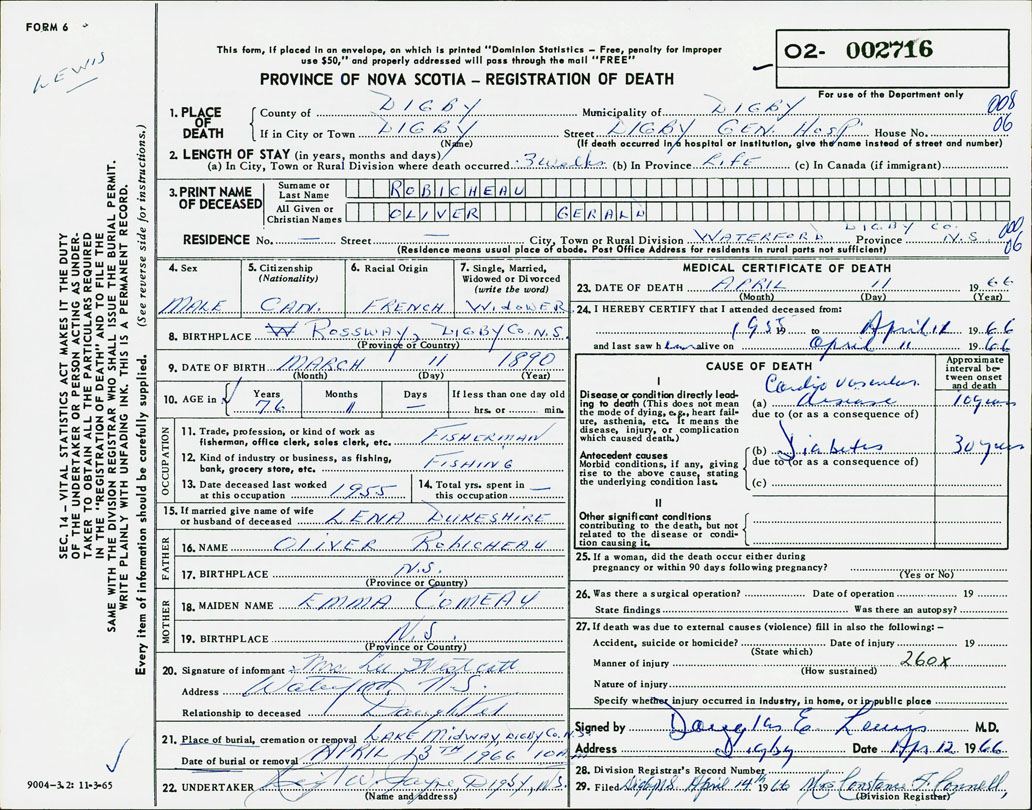 FORM 6
LEWIS
This form, if placed in an envelope, on which is printed "Dominion Statistics – Free, penalty for improper
use $50," and properly addressed will pass through the mail "FREE"
PROVINCE OF NOVA SCOTIA – REGISTRATION OF DEATH
02- 002716
For use of the Department only
1. PLACE OF DEATH
County of DIGBY Municipality of DIGBY 008
If in City or Town DIGBY Street DIGBY GEN. HOSP. House No. 06
(Name) (If death occurred in a hospital or institution, give the name instead of street and number)
2. LENGTH OF STAY (in years, months and days)
(a) In City, Town or Rural Division where death occurred 3 weeks (b) In Province LIFE (c) In Canada (if immigrant)
3. PRINT NAME OF DECEASED
Surname or Last Name ROBICHEAU
All Given or Christian Names OLIVER GERALD
RESIDENCE No. — Street — City, Town or Rural Division WATERFORD DIGBY CO. Province N.S. 06
(Residence means usual place of abode. Post Office Address for residents in rural parts not sufficient)
4. Sex
MALE
5. Citizenship (Nationality)
CAN.
6. Racial Origin
FRENCH
7. Single, Married, Widowed or Divorced (write the word)
WIDOWER
8. BIRTHPLACE ROSSWAY, DIGBY CO. N.S.
(Province or Country)
9. DATE OF BIRTH MARCH 11 1890
(Month) (Day) (Year)
10. AGE in
Years 76
Months
Days —
If less than one day old
hrs. or min.
OCCUPATION
11. Trade, profession, or kind of work as fisherman, office clerk, sales clerk, etc. FISHERMAN
12. Kind of industry or business, as fishing, bank, grocery store, etc. FISHING
13. Date deceased last worked at this occupation 1955
14. Total yrs. spent in this occupation —
15. If married give name of wife or husband of deceased LENA DUKESHIRE
FATHER
16. NAME OLIVER ROBICHEAU
17. BIRTHPLACE N.S.
(Province or Country)
MOTHER
18. MAIDEN NAME EMMA COMEAU
19. BIRTHPLACE N.S.
(Province or Country)
20. Signature of informant Mrs Westcott
Address Waterford, N.S.
Relationship to deceased Daughter
21. Place of burial, cremation or removal LAKE MIDWAY, DIGBY Co. N.S.
Date of burial or removal APRIL 13TH 1966
22. UNDERTAKER W. Digby, N.S.
(Name and address)
MEDICAL CERTIFICATE OF DEATH
23. DATE OF DEATH APRIL 11 1966
(Month) (Day) (Year)
24. I HEREBY CERTIFY that I attended deceased from:
195 19 to April 11 1966
and last saw h alive on April 11 1966
CAUSE OF DEATH
Approximate interval between onset and death
I
Disease or condition directly leading to death (This does not mean the mode of dying, e.g., heart failure, asthenia, etc. It means the disease, injury, or complication which caused death.)
(a) Cardio vascular disease 10 years
due to (or as a consequence of)
Antecedent causes
Morbid conditions, if any, giving rise to the above cause, stating the underlying condition last.
(b) Diabetes 30 years
due to (or as a consequence of)
(c)
II
Other significant conditions contributing to the death, but not related to the disease or condition causing it.
25. If a woman, did the death occur either during pregnancy or within 90 days following pregnancy?
(Yes or No)
26. Was there a surgical operation? Date of operation 19
State findings Was there an autopsy?
27. If death was due to external causes (violence) fill in also the following: –
Accident, suicide or homicide? Date of injury 19
(State which)
Manner of injury 260X
(How sustained)
Nature of injury
Specify whether injury occurred in industry, in home, or in public place
Signed by Douglas E. Lewis M.D.
Address Digby Date Apr 12 1966
28. Division Registrar's Record Number
29. Filed April 14th 1966 Mrs Constance F. Connell,
(Division Registrar)
SEC. 14 – VITAL STATISTICS ACT MAKES IT THE DUTY
OF THE UNDERTAKER OR PERSON ACTING AS UNDER-
TAKER TO OBTAIN ALL THE PARTICULARS REQUIRED
IN THE "REGISTRATION OF DEATH" AND TO FILE THE
SAME WITH THE DIVISION REGISTRAR WHO SHALL ISSUE THE BURIAL PERMIT.
WRITE PLAINLY WITH UNFADING INK. THIS IS A PERMANENT RECORD.
Every item of information should be carefully supplied. (See reverse side for instructions.)
9004-3.2: 11-3-65